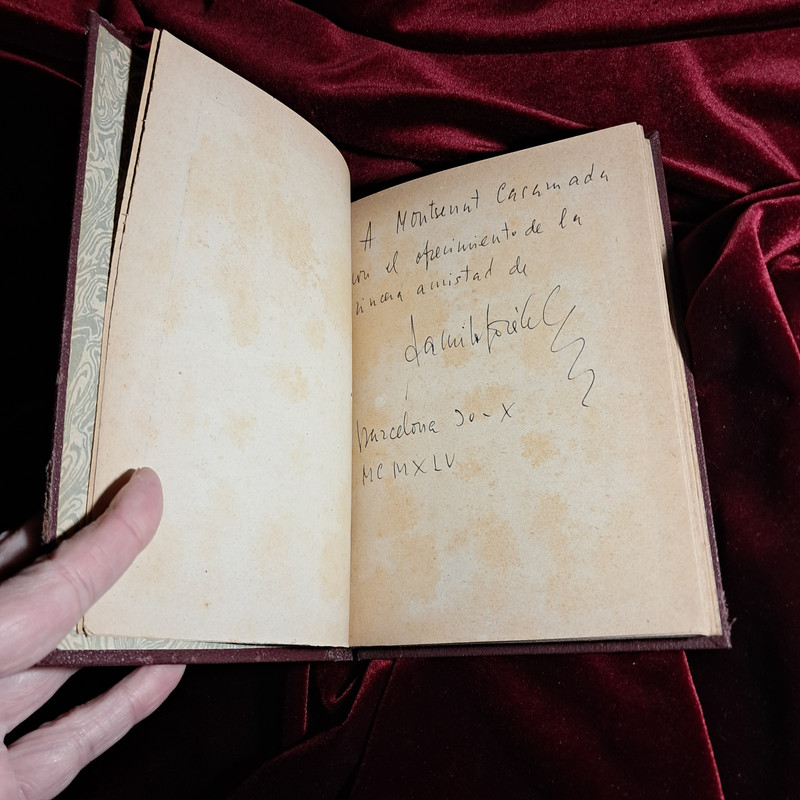 A Montserrat Casamada
con el ofrecimiento de la
sincera amistad de
Barcelona 30-X
MCMXLV